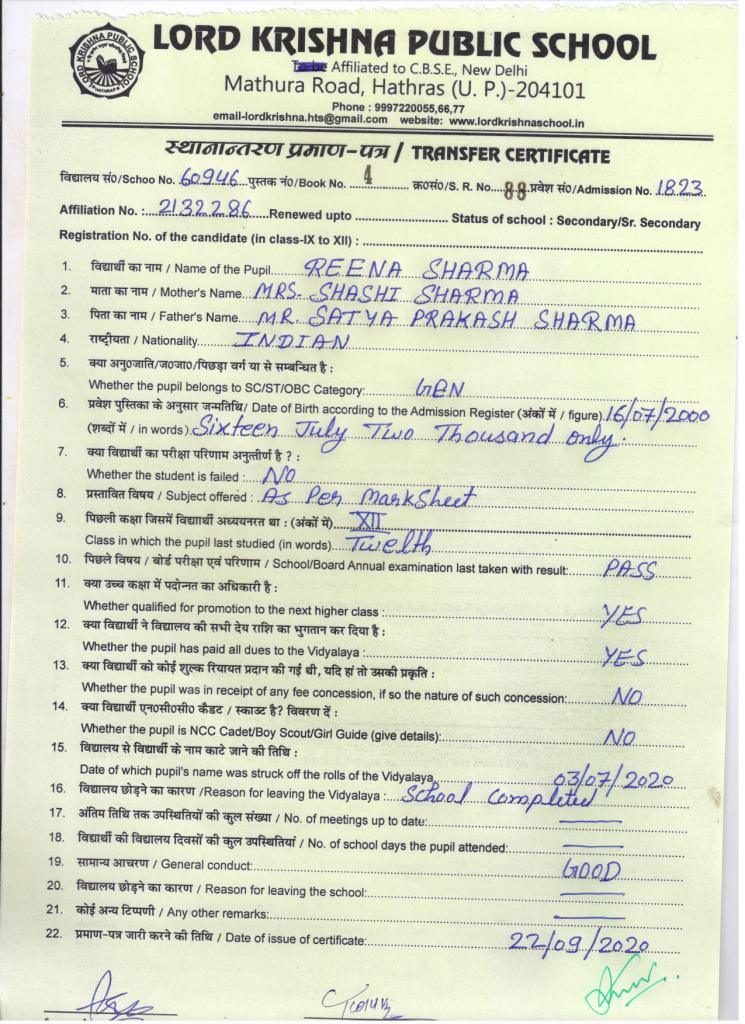 LORD KRISHNA PUBLIC SCHOOL
LORD KRISHNA PUBLIC SCHOOL
HATHRAS
To be Affiliated to C.B.S.E., New Delhi
Mathura Road, Hathras (U. P.)-204101
Phone : 9997220055,66,77
email-lordkrishna.hts@gmail.com website: www.lordkrishnaschool.in
स्थानान्तरण प्रमाण-पत्र / TRANSFER CERTIFICATE
विद्यालय सं0/Schoo No. 60946 पुस्तक नं0/Book No. 4 क्र0सं0/S. R. No. 88 प्रवेश सं0/Admission No. 1823
Affiliation No. : 2132286 Renewed upto .......... Status of school : Secondary/Sr. Secondary
Registration No. of the candidate (in class-IX to XII) : ..........
1. विद्यार्थी का नाम / Name of the Pupil REENA SHARMA
2. माता का नाम / Mother's Name MRS. SHASHI SHARMA
3. पिता का नाम / Father's Name MR. SATYA PRAKASH SHARMA
4. राष्ट्रीयता / Nationality INDIAN
5. क्या अनु0जाति/ज0जा0/पिछड़ा वर्ग या से सम्बन्धित है :
Whether the pupil belongs to SC/ST/OBC Category: GEN
6. प्रवेश पुस्तिका के अनुसार जन्मतिथि/ Date of Birth according to the Admission Register (अंकों में / figure) 16/07/2000
(शब्दों में / in words) Sixteen July Two Thousand only.
7. क्या विद्यार्थी का परीक्षा परिणाम अनुत्तीर्ण है ? :
Whether the student is failed : NO
8. प्रस्तावित विषय / Subject offered : As Per Marksheet
9. पिछली कक्षा जिसमें विद्यार्थी अध्ययनरत था : (अंकों में) XII
Class in which the pupil last studied (in words) Twelth
10. पिछले विषय / बोर्ड परीक्षा एवं परिणाम / School/Board Annual examination last taken with result: PASS
11. क्या उच्च कक्षा में पदोन्नत का अधिकारी है :
Whether qualified for promotion to the next higher class : YES
12. क्या विद्यार्थी ने विद्यालय की सभी देय राशि का भुगतान कर दिया है :
Whether the pupil has paid all dues to the Vidyalaya : YES
13. क्या विद्यार्थी को कोई शुल्क रियायत प्रदान की गई थी, यदि हां तो उसकी प्रकृति :
Whether the pupil was in receipt of any fee concession, if so the nature of such concession: NO
14. क्या विद्यार्थी एन0सी0सी0 कैडट / स्काउट है? विवरण दें :
Whether the pupil is NCC Cadet/Boy Scout/Girl Guide (give details): NO
15. विद्यालय से विद्यार्थी के नाम काटे जाने की तिथि :
Date of which pupil's name was struck off the rolls of the Vidyalaya 03/07/2020
16. विद्यालय छोड़ने का कारण /Reason for leaving the Vidyalaya : School Completed
17. अंतिम तिथि तक उपस्थितियों की कुल संख्या / No. of meetings up to date: —
18. विद्यार्थी की विद्यालय दिवसों की कुल उपस्थितियां / No. of school days the pupil attended: —
19. सामान्य आचरण / General conduct: GOOD
20. विद्यालय छोड़ने का कारण / Reason for leaving the school: —
21. कोई अन्य टिप्पणी / Any other remarks: —
22. प्रमाण-पत्र जारी करने की तिथि / Date of issue of certificate: 22/09/2020